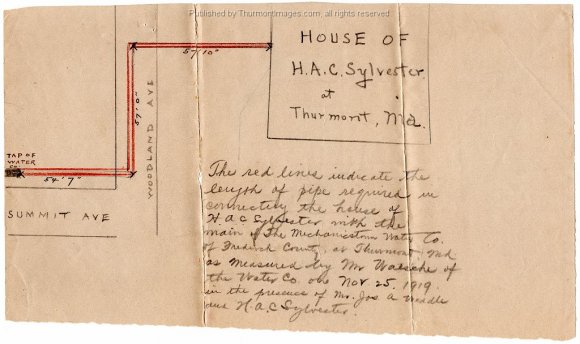 Published by Thurmontimages.com, all rights reserved
57'10"
HOUSE OF
H.A.C. Sylvester
at
Thurmont, Md.
57'0"
WOODLAND AVE
TAP OF
WATER
54'7"
SUMMIT AVE
The red lines indicate the
length of pipe required in
connecting the house of
H A C Sylvester with the
main of The Mechanicstown Water Co.
of Frederick County, at Thurmont Md
as measured by Mr of
the Water Co. on Nov 25, 1919.
in the presence of Mr. Jos A Weddle
and H.A.C Sylvester.